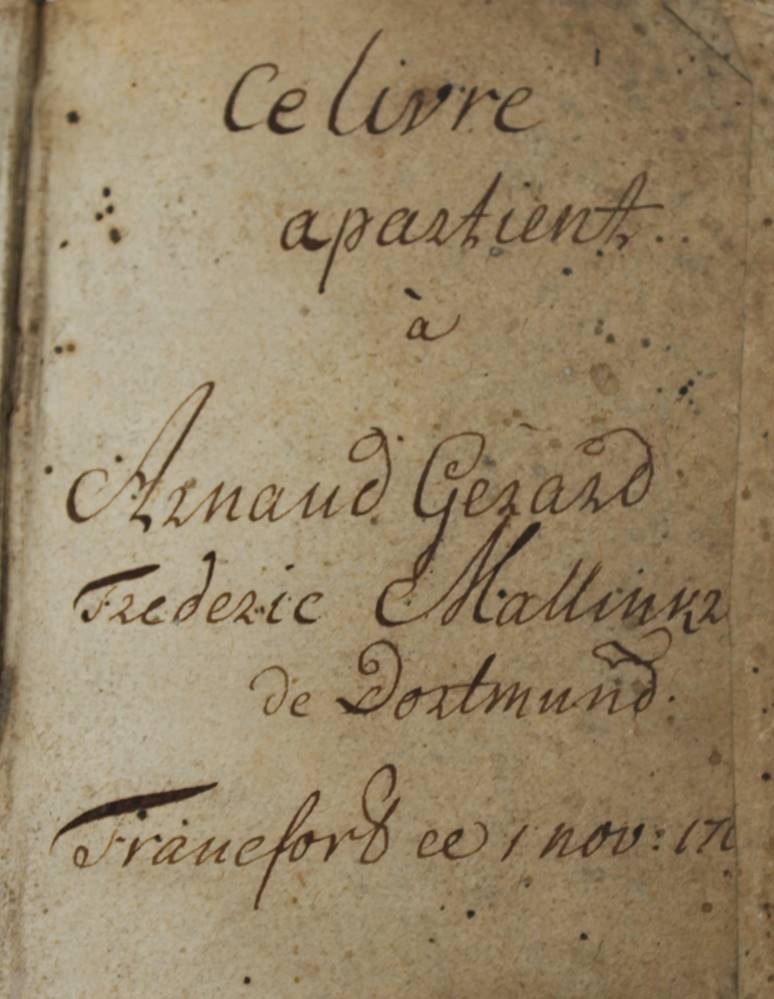 Ce livre
apartient
à
Arnaud Gerard
Frederic Mallinkr
de Dortmund.
Francfort ce 1 nov: 17